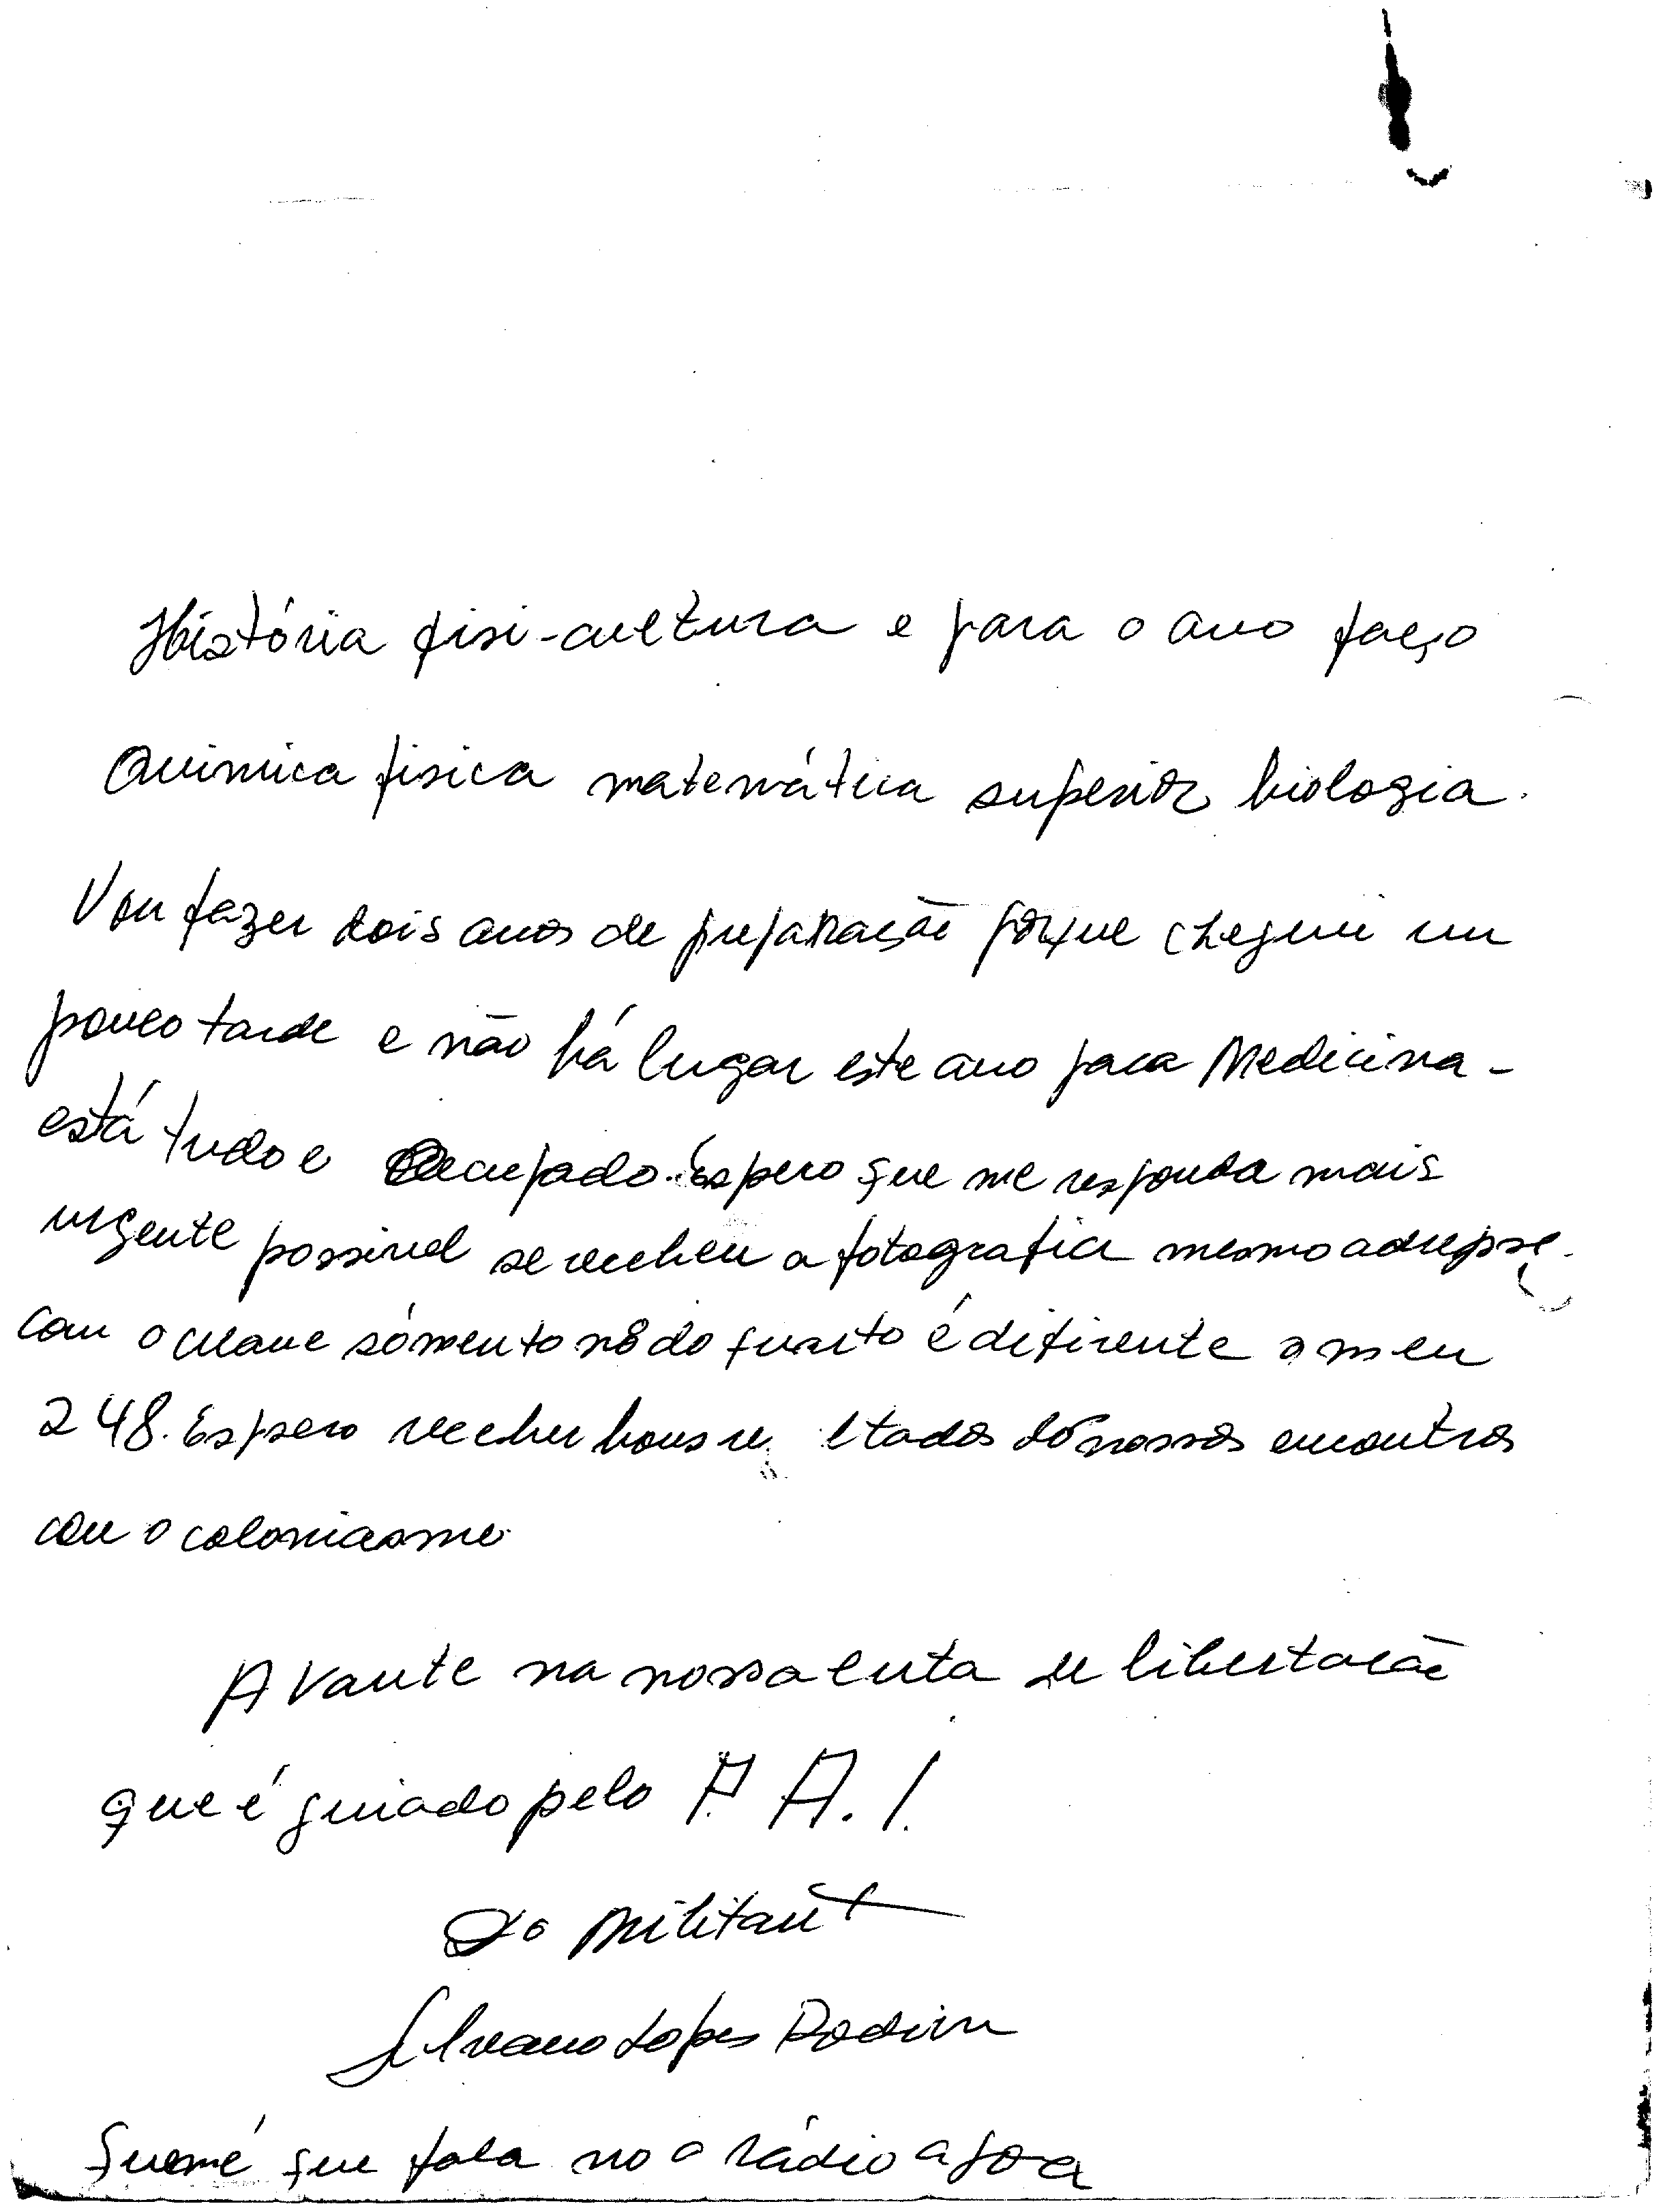 História fisi-cultura e para o ano faço
Quimica fisica matemática superior biologia.
Vou fazer dois anos de preparação porque cheguei um
pouco tarde e não há lugar este ano para Medicina -
está tudo e ocupado. Espero que me responda mais
urgente possivel se recebeu a fotografia mesmo
com o sómento nº do quarto é difirente o meu
248. Espero receber bons re ltados dos nossos encontros
com o
Avante na nossa luta de libertação
que é guiado pelo P. A. I.
Do Militant
Silvano Lopes
Quemé que fala no o rádio agora